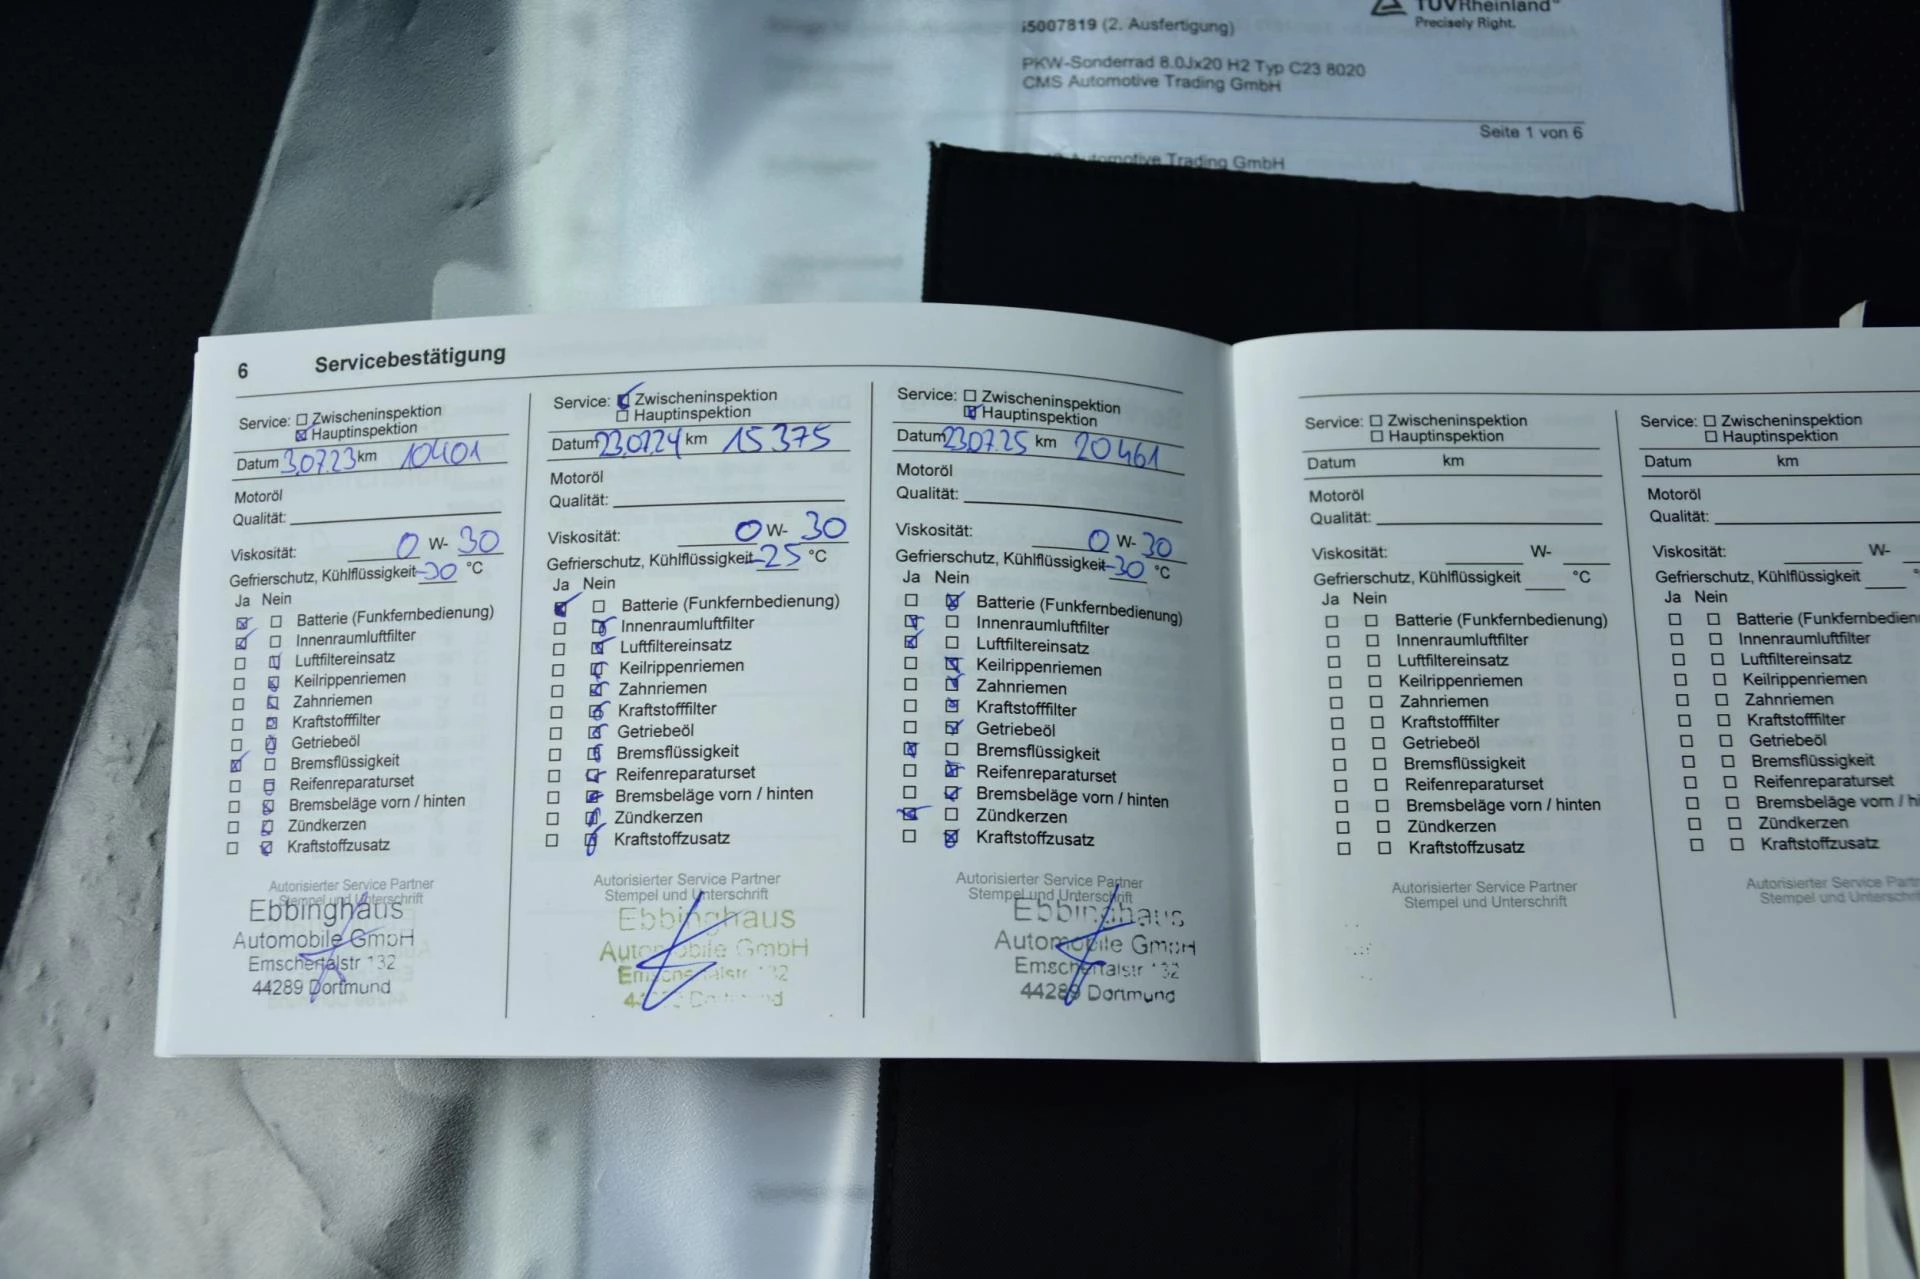 TÜVRheinland®
Precisely Right.
i5007819 (2. Ausfertigung)
PKW-Sonderrad 8.0Jx20 H2 Typ C23 8020
CMS Automotive Trading GmbH
Seite 1 von 6
Automotive Trading GmbH
6 Servicebestätigung
Service: Zwischeninspektion
Hauptinspektion
Datum 3.07.23 km 10401
Motoröl
Qualität:
Viskosität: 0 W- 30
Gefrierschutz, Kühlflüssigkeit -30 °C
Ja Nein
Batterie (Funkfernbedienung)
Innenraumluftfilter
Luftfiltereinsatz
Keilrippenriemen
Zahnriemen
Kraftstofffilter
Getriebeöl
Bremsflüssigkeit
Reifenreparaturset
Bremsbeläge vorn / hinten
Zündkerzen
Kraftstoffzusatz
Autorisierter Service Partner
Stempel und Unterschrift
Ebbinghaus
Automobile GmbH
Emschertalstr 132
44289 Dortmund
Service: Zwischeninspektion
Hauptinspektion
Datum 23.07.24 km 15375
Motoröl
Qualität:
Viskosität: 0 W- 30
Gefrierschutz, Kühlflüssigkeit -25 °C
Ja Nein
Batterie (Funkfernbedienung)
Innenraumluftfilter
Luftfiltereinsatz
Keilrippenriemen
Zahnriemen
Kraftstofffilter
Getriebeöl
Bremsflüssigkeit
Reifenreparaturset
Bremsbeläge vorn / hinten
Zündkerzen
Kraftstoffzusatz
Autorisierter Service Partner
Stempel und Unterschrift
Ebbinghaus
Automobile GmbH
Emschertalstr 132
44289 Dortmund
Service: Zwischeninspektion
Hauptinspektion
Datum 23.07.25 km 20461
Motoröl
Qualität:
Viskosität: 0 W- 30
Gefrierschutz, Kühlflüssigkeit -30 °C
Ja Nein
Batterie (Funkfernbedienung)
Innenraumluftfilter
Luftfiltereinsatz
Keilrippenriemen
Zahnriemen
Kraftstofffilter
Getriebeöl
Bremsflüssigkeit
Reifenreparaturset
Bremsbeläge vorn / hinten
Zündkerzen
Kraftstoffzusatz
Autorisierter Service Partner
Stempel und Unterschrift
Ebbinghaus
Automobile GmbH
Emschertalstr 132
44289 Dortmund
Service: Zwischeninspektion
Hauptinspektion
Datum km
Motoröl
Qualität:
Viskosität: W-
Gefrierschutz, Kühlflüssigkeit °C
Ja Nein
Batterie (Funkfernbedienung)
Innenraumluftfilter
Luftfiltereinsatz
Keilrippenriemen
Zahnriemen
Kraftstofffilter
Getriebeöl
Bremsflüssigkeit
Reifenreparaturset
Bremsbeläge vorn / hinten
Zündkerzen
Kraftstoffzusatz
Autorisierter Service Partner
Stempel und Unterschrift
Service: Zwischeninspektion
Hauptinspektion
Datum km
Motoröl
Qualität:
Viskosität: W-
Gefrierschutz, Kühlflüssigkeit
Ja Nein
Batterie (Funkfernbedien
Innenraumluftfilter
Luftfiltereinsatz
Keilrippenriemen
Zahnriemen
Kraftstofffilter
Getriebeöl
Bremsflüssigkeit
Reifenreparaturset
Bremsbeläge vorn / hi
Zündkerzen
Kraftstoffzusatz
Autorisierter Service Part
Stempel und Unterschrif